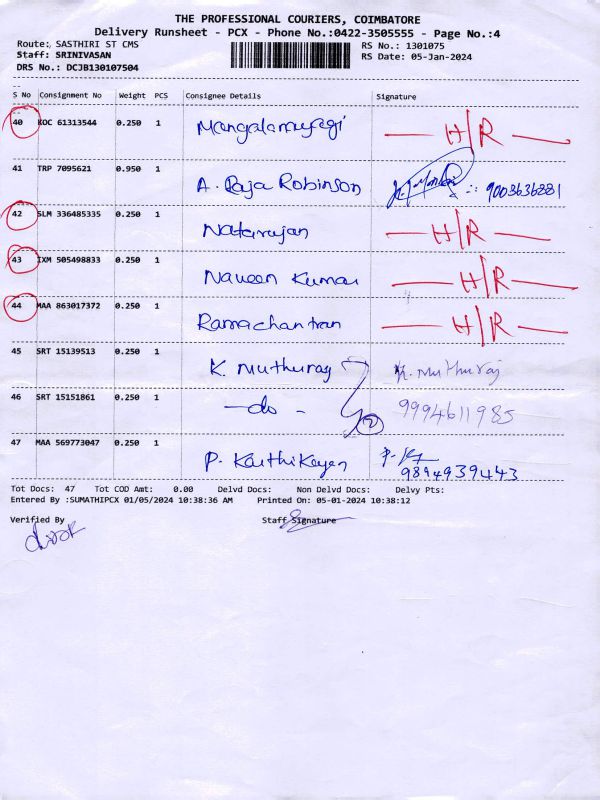 THE PROFESSIONAL COURIERS, COIMBATORE
Delivery Runsheet - PCX - Phone No.:0422-3505555 - Page No.:4
Route:, SASTHIRI ST CMS RS No.: 1301075
Staff: SRINIVASAN RS Date: 05-Jan-2024
DRS No.: DCJB130107504
S No Consignment No Weight PCS Consignee Details Signature
40 KOC 61313544 0.250 1 H/R
41 TRP 7095621 0.950 1 A. Raja Robinson 9003636881
42 SLM 336485335 0.250 1 Natarajan H/R
43 IXM 505498833 0.250 1 Naveen Kumar H/R
44 MAA 863017372 0.250 1 Ramachantran H/R
45 SRT 15139513 0.250 1 K. Muthuraj K. Muthuraj
46 SRT 15151861 0.250 1 —do - 2 9994611985
47 MAA 569773047 0.250 1 P. Karthikeyan 9894939443
Tot Docs: 47 Tot COD Amt: 0.00 Delvd Docs: Non Delvd Docs: Delvy Pts:
Entered By :SUMATHIPCX 01/05/2024 10:38:36 AM Printed On: 05-01-2024 10:38:12
Verified By Staff Signature